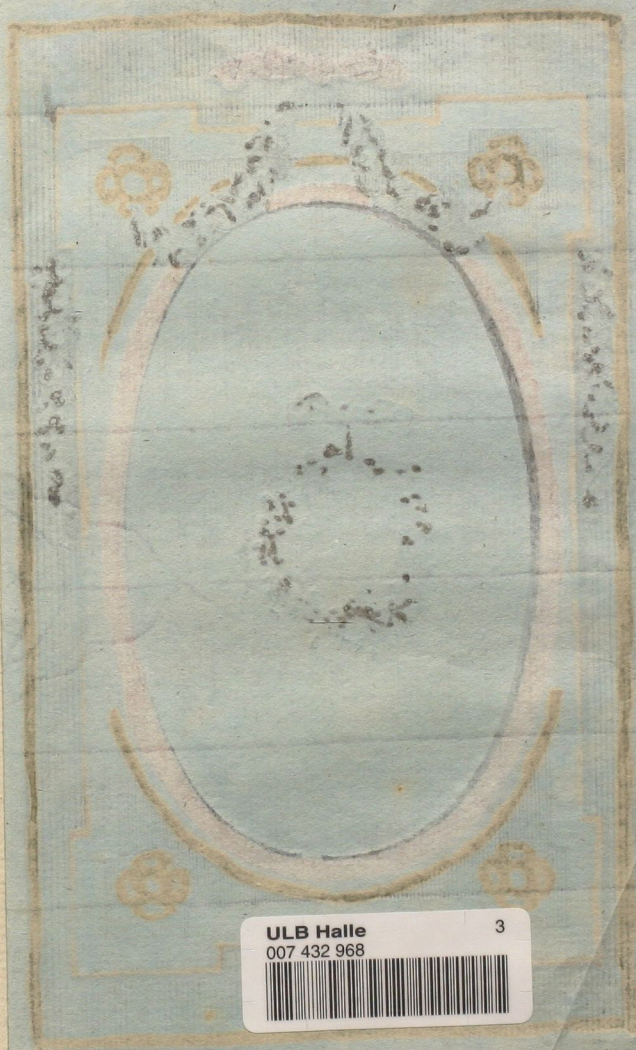 ULB Halle 3
007 432 968